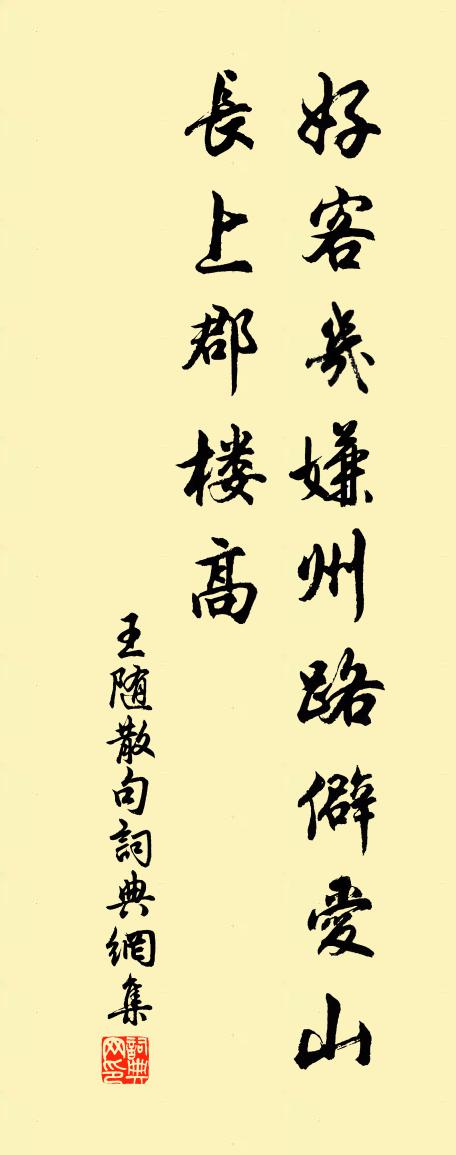 好客幾嫌州路僻愛山
長上郡楼高
王随散句詞典網集
詞典网印